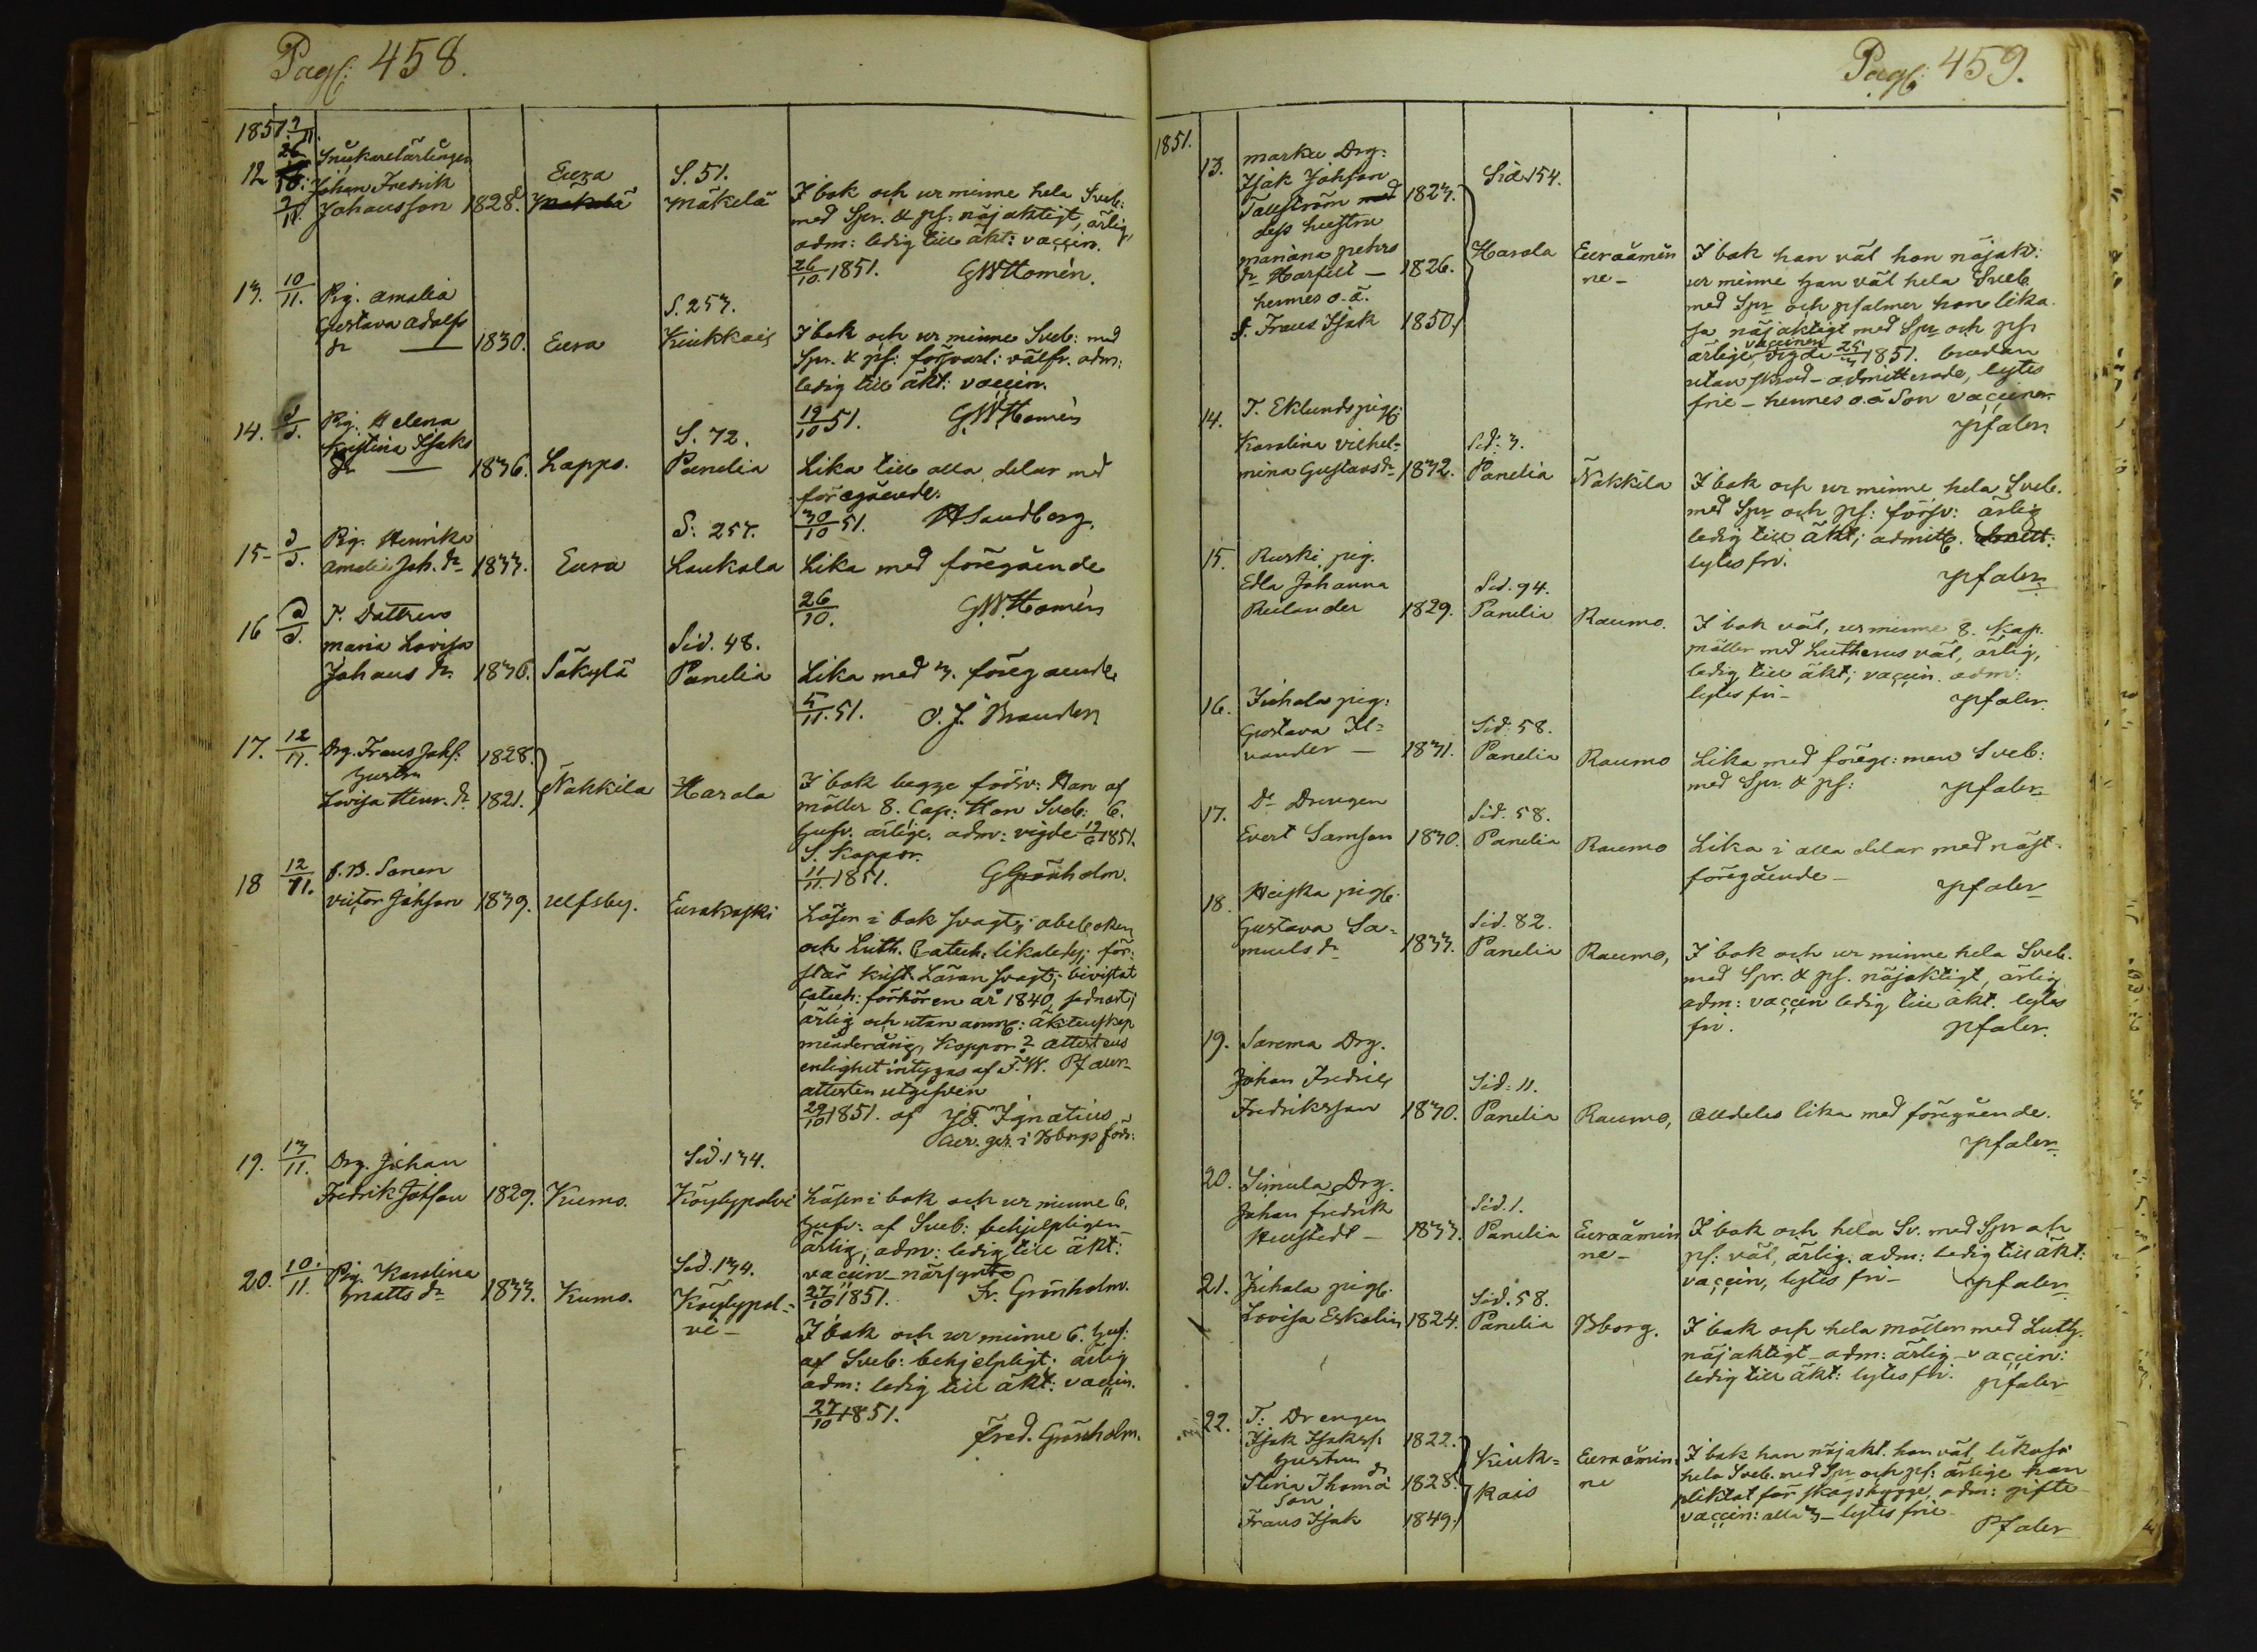 Pag: 458.
1851.
12 26/10. 2/11. Snickarelärlingen
Johan Fredrik
Johansson 1828. Eura S. 51. Mäkelä
I bok och ur minne hela Sveb:
med Spr. & ps. nöjaktigt, ärlig,
adm: ledig till äkt: vaccin.
26/10 1851. GWHomén.
13. 10/11. Pig. Amalia
Gustava Adolfs
dr — 1830. Eura S. 257. Kiukkais
I bok och ur minne Sveb: med
Spr. & ps: försvarl: välfr. adm:
ledig till äkt: vaccin.
19/10 51. GWHomén
14. d/d. Pig. Helena
Kristina Isaks
dr — 1836. Lappo. S. 72. Panelia
Lika till alla delar med
föregående.
30/10 51. Sandberg.
15- d/d. Pig. Henrika
Amalia Joh. dr 1833. Eura S: 257. Laukola
Lika med föregående
26/10. GWHomén
16 d/d. T. Dottren
Maria Lovisa
Johans dr 1836. Säkylä Sid. 48. Panelia
Lika med 3. föregaende
5/11. 51. O. J. Brander
17. 12/11. Drg. Frans Jaks: 1828.
hustru
Lovisa Henr. dr 1821. Nakkila Harola
I bok begge försv: Han af
möller 8. Cap: Hon Sveb: 6.
hufv. ärlige, adm: vigde 19/6 1851.
S. Koppor.
11/11. 1851. G Grönholm.
18 12/11. f. B. Sonen
Victor Johsson 1839. Ulfsby. Eurakoski
Läser i bok svagt; abcboken
och Luth. Catech: likaledes; för-
står krist. Läran svagt; bivistat
Catech: förhören år 1840, sednast;
ärlig och utan anm: äktenskap
minderårig, Koppor? Attestens
enlighet intygas af F. W. Pfaler
attesten utgifven
29/10 1851. af Ignatius
i Bborgs förs:
19. 13/11. Drg. Johan
Fredrik Johsson 1829. Kumo. Sid. 134. Köylypolvi
Läser i bok och ur minne 6.
hufv: af Sveb: behjelpligen
ärlig; adm: ledig till äkt:
vaccin – närsynt
27/10 1851. Fr. Grönholm.
20. 10/11. Pig. Karolina
Matts dr 1833. Kumo. Sid. 134. Köylypol-
vi –
I bok och ur minne 6. huf:
af Sveb: behjelpligt; ärlig
adm: ledig till äkt: vaccin.
27/10 1851.
Fred. Grönholm.
Pag: 459.
1851.
13. Marku Drg:
Isak Johsson
Tallström 1827. Sid. 154.
dess hustru
Mariana Pehrs
dr Harfelt — 1826. Harola Euraåmin
ne –
hennes o. ä.
S. Frans Isak 1850.
I bok han väl hon nöjakt:
ur minne han väl hela Sveb.
med Spr och psalmer hon lika
så nöjaktigt med Spr och ps
ärlige, vaccinen vigde 25/3 1851. bruden
utan skrud – admitterade, lytes
frie – hennes o. ä Son vaccinen
Pfaler.
14. T. Eklunds pig:
Karolina Vilhel-
mina Gustavs dr 1832. Sid: 3. Panelia Nakkila
I bok och ur minne hela Sveb.
med Spr och ps: försv: ärlig
ledig till äkt; admitt.
lytes fri.
Pfaler
15. Ruski pig.
Edla Johanna
Rulander 1829. Sid. 94. Panelia Raumo.
I bok väl, ur minne 8. Kap.
möller med Lutherus väl, ärlig,
ledig till äkt; vaccin. adm:
lytes fri –
Pfaler.
16. Juhola pig:
Gustava Il-
vander — 1831. Sid. 58. Panelia Raumo
Lika med föreg: men Sveb:
med Spr. & ps:
Pfaler
17. Do Drengen
Evert Samson 1830. Sid. 58. Panelia Raumo
Lika i alla delar med näst-
föregående –
Pfaler
18. Heiska pig:
Gustava Sa-
muels dr 1833. Sid. 82. Panelia Raumo,
I bok och ur minne hela Sveb.
med Spr. & ps. nöjaktigt, ärlig
adm: vaccin ledig till äkt. lytes
fri.
Pfaler.
19. Sarema Drg.
Johan Fredrik
Fredriksson 1830. Sid: 11. Panelia Raumo,
Alldeles lika med föregående.
Pfaler
20. Simula Drg.
Johan Fredrik
Henstedt – 1833. Sid. 1. Panelia Euraåmin
ne –
I bok och hela Sv. med Spr och
ps: väl, ärlig. adm: ledig till äkt:
vaccin, lytes fri –
Pfaler
21. Juhola pig:
Lovisa Eskolin 1824. Sid. 58. Panelia Bborg.
I bok och hela Möller med Luth.
nöjaktigt – adm: ärlig – vaccin:
ledig till äkt: lytes fri.
Pfaler
22. T: Drengen
Isak Isakss: 1822.
hustrun
Stina Thoma dr 1828. Kiuk-
kais Euraåmin
ne
Son
Frans Isak 1849.
I bok han nöjakt. hon väl likaså
hela Sveb. med Spr och ps: ärlige han
pliktat för skogshygge, adm: gifte
vaccin: alla 3 – lytes frie –
Pfaler